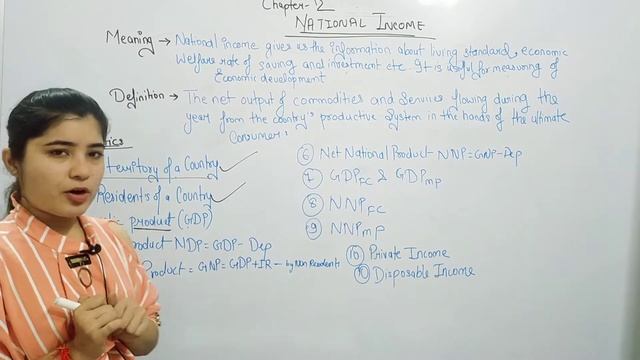 Chapter-12
NATIONAL INCOME
Meaning → National income gives us the information about living standard, economic
Welfare rate of saving and investment etc. It is useful for measuring of
Economic development
Definition → The net output of commodities and services flowing during the
year from the country's productive system in the hands of the ultimate
Consumer.
territory of a Country
Residents of a Country
product (GDP)
product NDP = GDP - Dep
Product = GNP = GDP + IR - by Non Residents
⑥ Net National Product NNP = GNP - Dep
⑦ GDPFC & GDPMP
⑧ NNPFC
⑨ NNPMP
⑩ Private Income
Disposable Income